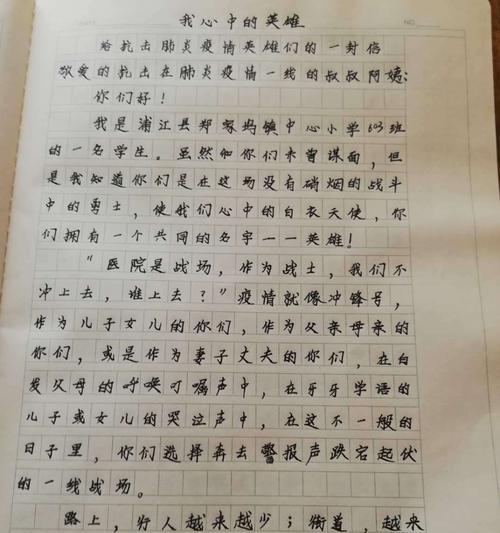 我心中的英雄
给抗击肺炎疫情英雄们的一封信
敬爱的抗击在肺炎疫情一线的叔叔阿姨:
你们好!
我是浦江县郑家坞镇中心小学603班
的一名学生。虽然和你们未曾谋面,但
是我知道你们是在这场没有硝烟的战斗
中的勇士,使我们心中的白衣天使,你
们拥有一个共同的名字——英雄!
"医院是战场,作为战士,我们不
冲上去,谁上去?"疫情就像冲锋号,
作为儿子女儿的你们,作为父亲母亲的
你们,或是作为妻子丈夫的你们,在白
发父母的呼唤叮嘱声中,在牙牙学语的
儿子或女儿的哭泣声中,在这不一般的
日子里,你们选择奔去警报声跌宕起伏
的一线战场。
路上,行人越来越少;街道,越来